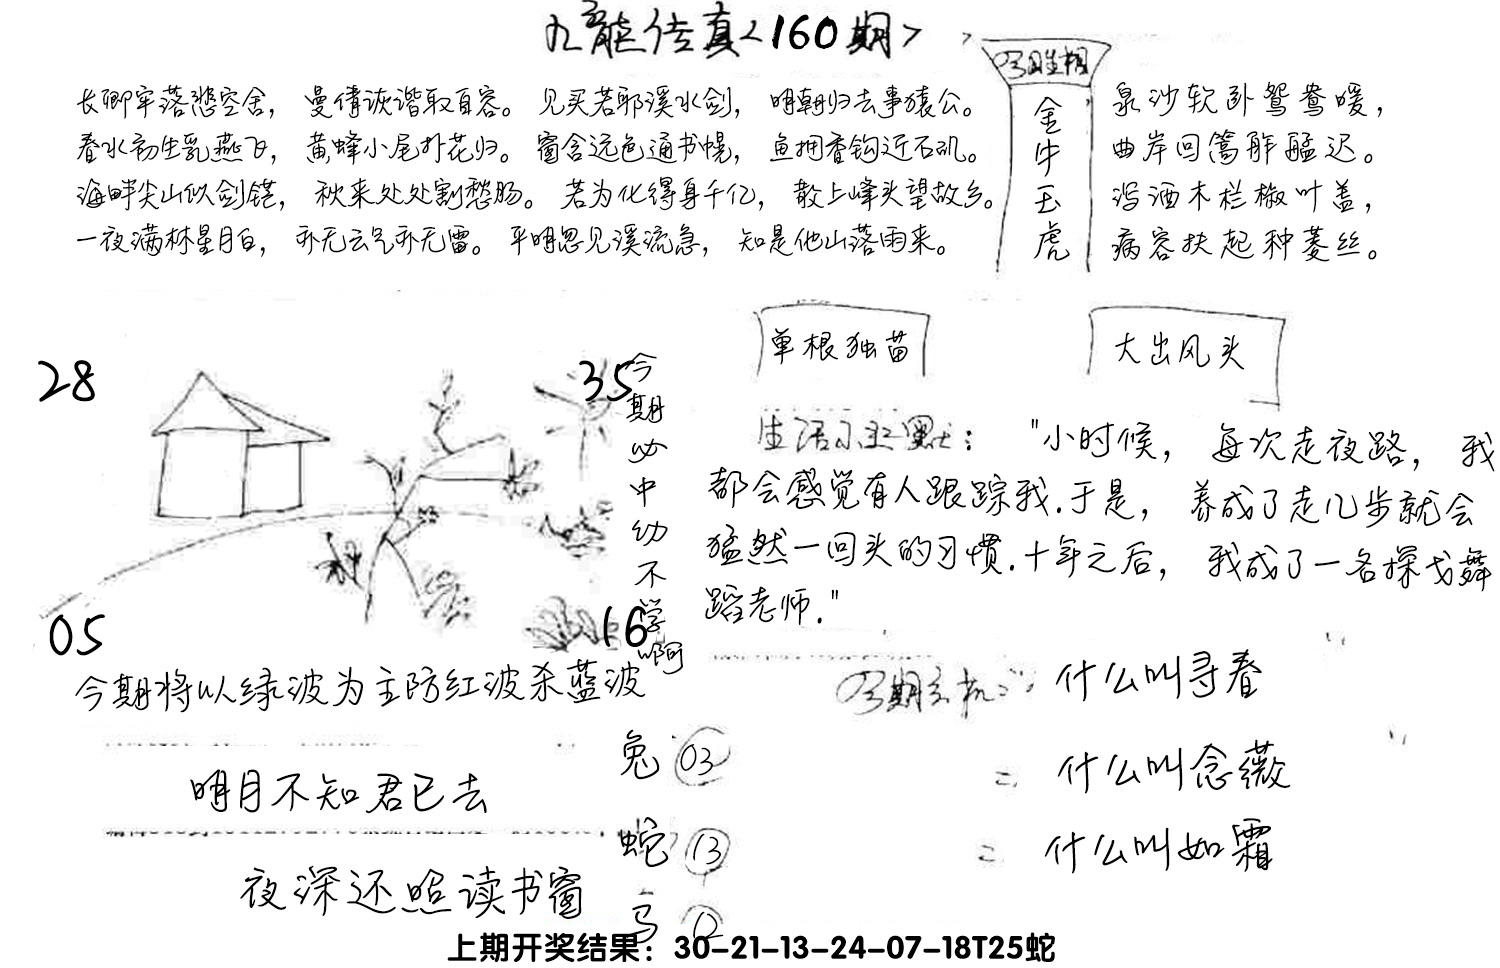 九龙传真<160期>
今期生相
金牛玉虎
长卿牢落悲空舍，曼倩诙谐取自容。见买若耶溪水剑，明朝归去事猿公。
春水初生乳燕飞，黄蜂小尾扑花归。窗含远色通书幌，鱼拥香钩近石矶。
海畔尖山似剑铓，秋来处处割愁肠。若为化得身千亿，散上峰头望故乡。
一夜满林星月白，亦无云气亦无雷。平明忽见溪流急，知是他山落雨来。
泉沙软卧鸳鸯暖，
曲岸回篙舴艋迟。
泻酒木栏椒叶盖，
病容扶起种菱丝。
28
35
05
16
今期必中幼不学啊
今期将以绿波为主防红波杀蓝波
明月不知君已去
夜深还照读书窗
兔 03
蛇 13
马 12
单根独苗
大出风头
生活小幽默："小时候，每次走夜路，我
都会感觉有人跟踪我.于是，养成了走几步就会
猛然一回头的习惯.十年之后，我成了一名探戈舞
蹈老师."
今期玄机：什么叫寻春
什么叫念薇
什么叫如霜
上期开奖结果：30-21-13-24-07-18T25蛇